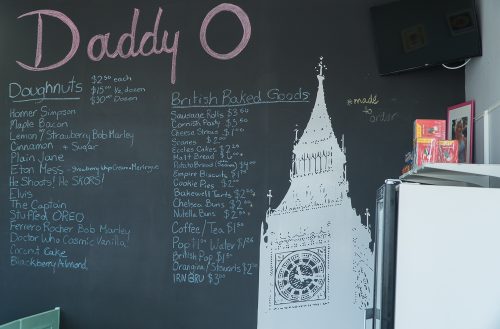 Daddy O
Doughnuts
$2.50 each
$15.00 ½ dozen
$30.00 Dozen
Homer Simpson
Maple Bacon
Lemon / Strawberry Bob Marley
Cinnamon + Sugar
Plain Jane
Eton Mess - Strawberry Whip Cream + Meringue
He Shoots! He SKORS!
Elvis
The Captain
Stuffed OREO
Ferrero Rocher Bob Marley
Doctor Who Cosmic Vanilla
Carrot Cake
Blackberry Almond
British Baked Goods
Sausage Rolls $3.50
Cornish Pasty $5.50
Cheese Straws $1
Scones $2
Eccles Cakes $2
Malt Bread $6
Potato Bread
Empire Biscuits $1
Cookie Pies $2
Bakewell Tarts $2
Chelsea Buns $2
Nutella Buns $2
Coffee/Tea $1
Pop $1 Water $1
British Pop $1
Orangina/Stewarts $2
IRN BRU $3.00
*made
to
order